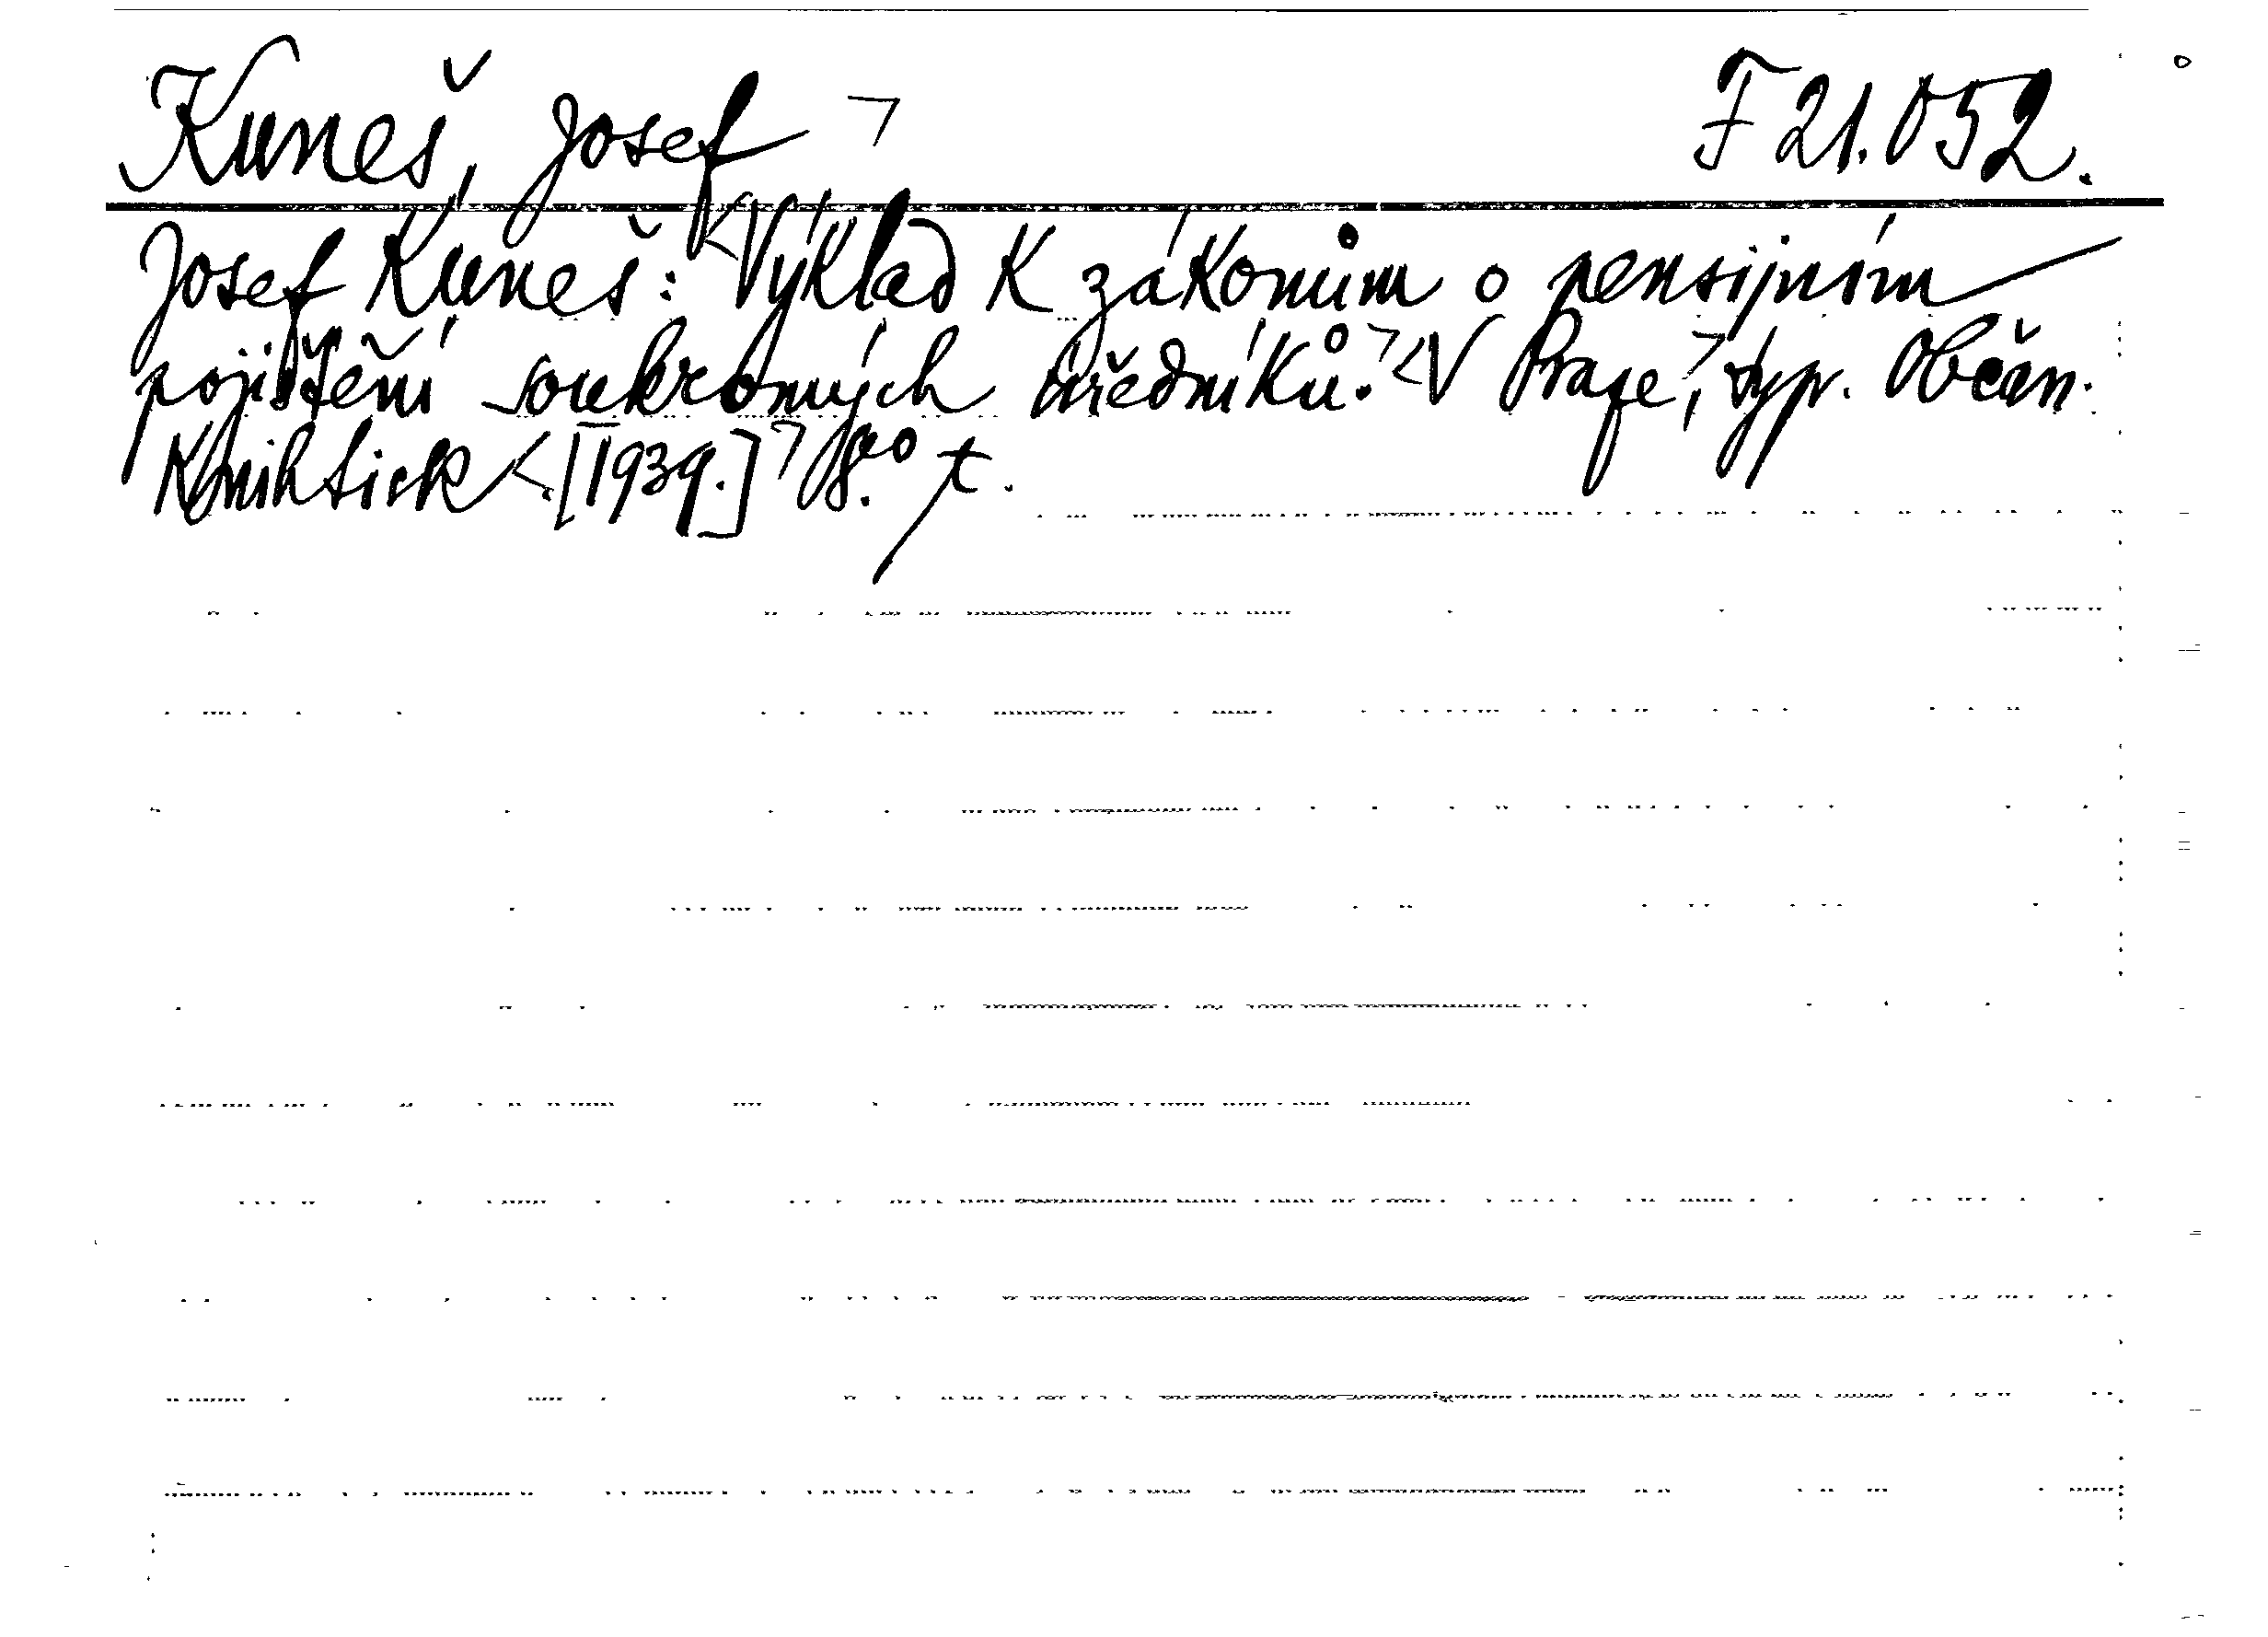 Kuneš, Josef ┐ F 21.052.
Josef Kuneš: <Výklad k zákonům o pensijním
pojištění soukromých úředníků.┐<V Praze,┐ typ. Občan.
Knihtisk <[1939.]┐ 8.vo t.